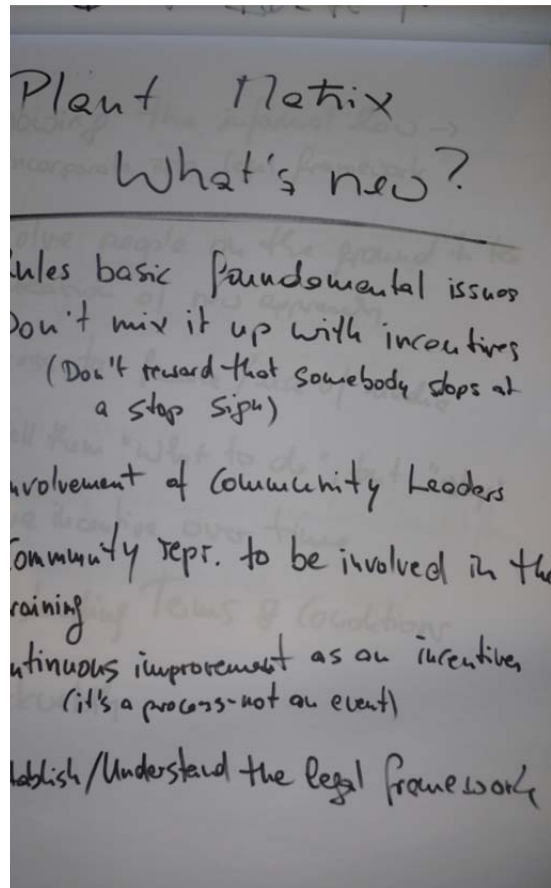 Plant Matrix
What's new?
ules basic foundamental issues
Don't mix it up with incentives
(Don't reward that somebody stops at
a stop sign)
nvolvement of Community Leaders
Community repr. to be involved in the
raining
ntinuous improvement as an incentive,
(it's a process-not an event)
tablish/Understand the legal framework